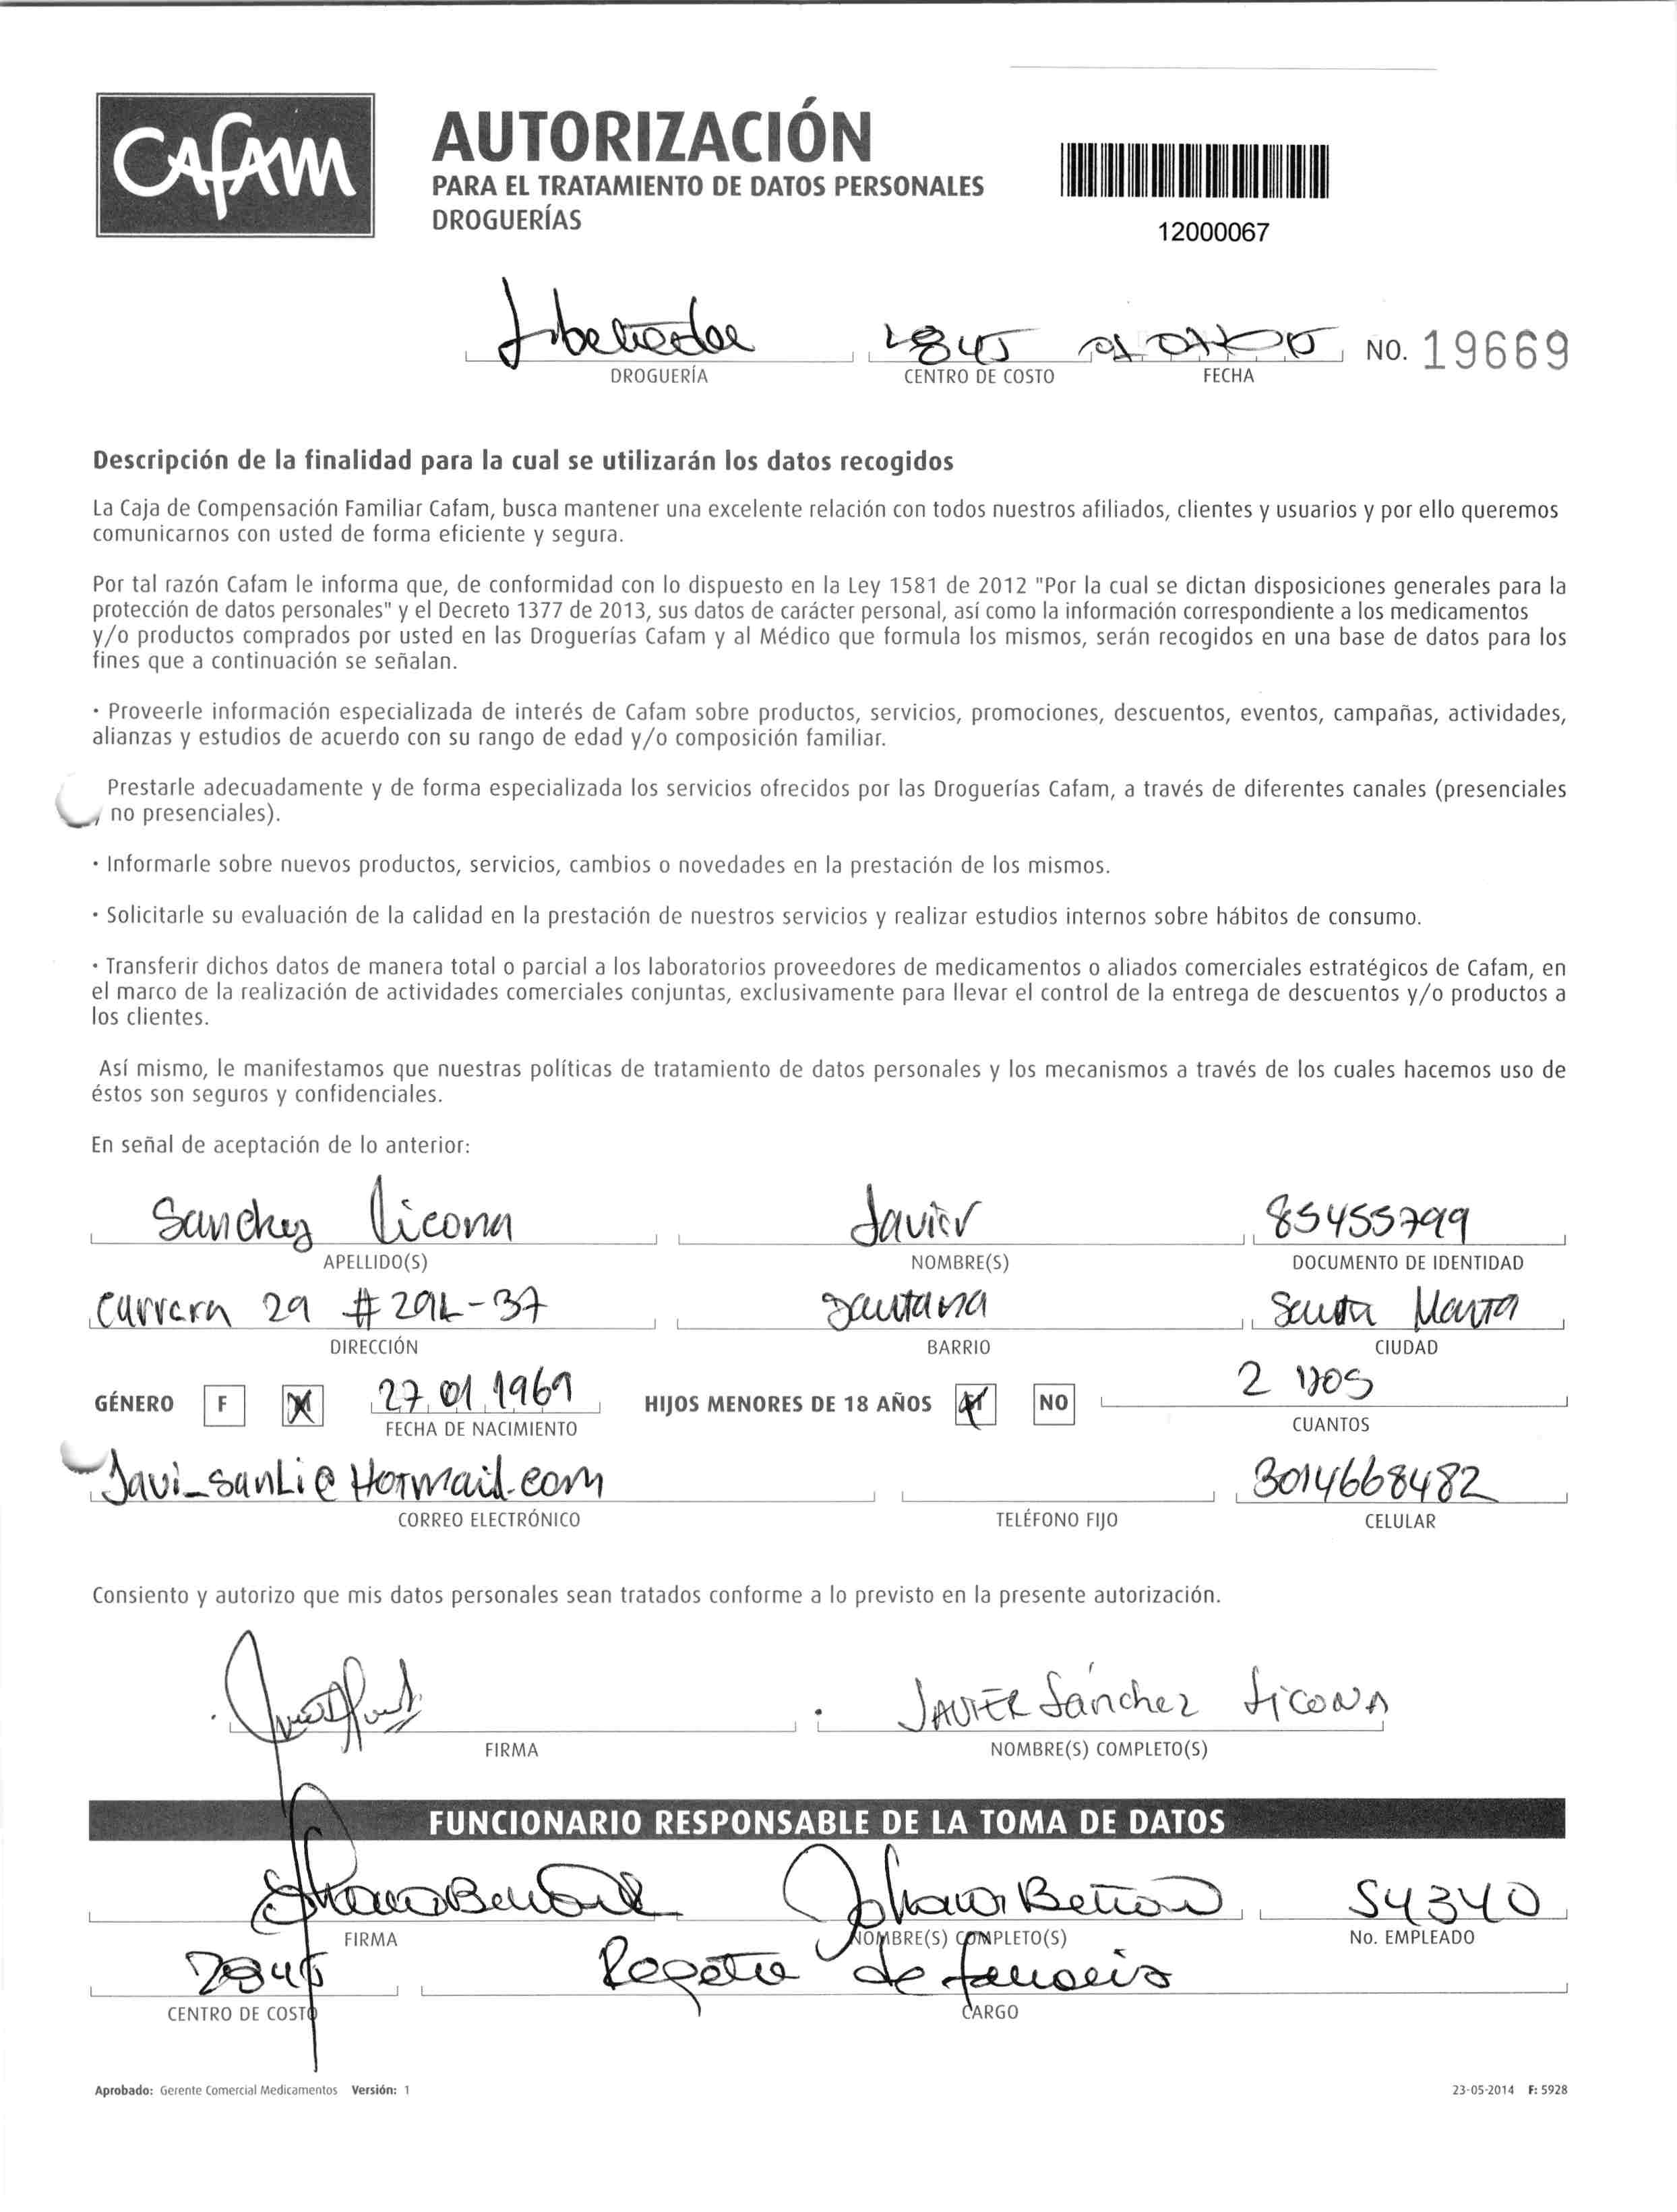 CAFAM
AUTORIZACIÓN
PARA EL TRATAMIENTO DE DATOS PERSONALES
DROGUERÍAS
12000067
Libertador 2845 NO. 19669
DROGUERÍA CENTRO DE COSTO FECHA
Descripción de la finalidad para la cual se utilizarán los datos recogidos
La Caja de Compensación Familiar Cafam, busca mantener una excelente relación con todos nuestros afiliados, clientes y usuarios y por ello queremos
comunicarnos con usted de forma eficiente y segura.
Por tal razón Cafam le informa que, de conformidad con lo dispuesto en la Ley 1581 de 2012 "Por la cual se dictan disposiciones generales para la
protección de datos personales" y el Decreto 1377 de 2013, sus datos de carácter personal, así como la información correspondiente a los medicamentos
y/o productos comprados por usted en las Droguerías Cafam y al Médico que formula los mismos, serán recogidos en una base de datos para los
fines que a continuación se señalan.
· Proveerle información especializada de interés de Cafam sobre productos, servicios, promociones, descuentos, eventos, campañas, actividades,
alianzas y estudios de acuerdo con su rango de edad y/o composición familiar.
Prestarle adecuadamente y de forma especializada los servicios ofrecidos por las Droguerías Cafam, a través de diferentes canales (presenciales
no presenciales).
· Informarle sobre nuevos productos, servicios, cambios o novedades en la prestación de los mismos.
· Solicitarle su evaluación de la calidad en la prestación de nuestros servicios y realizar estudios internos sobre hábitos de consumo.
· Transferir dichos datos de manera total o parcial a los laboratorios proveedores de medicamentos o aliados comerciales estratégicos de Cafam, en
el marco de la realización de actividades comerciales conjuntas, exclusivamente para llevar el control de la entrega de descuentos y/o productos a
los clientes.
Así mismo, le manifestamos que nuestras políticas de tratamiento de datos personales y los mecanismos a través de los cuales hacemos uso de
éstos son seguros y confidenciales.
En señal de aceptación de lo anterior:
Sanchez Licona Javier 85455799
APELLIDO(S) NOMBRE(S) DOCUMENTO DE IDENTIDAD
Carrera 29 # 29L-37 Santana Santa Marta
DIRECCIÓN BARRIO CIUDAD
GÉNERO F M 27 01 1969 HIJOS MENORES DE 18 AÑOS NO 2 DOS
FECHA DE NACIMIENTO CUANTOS
Javi_sanLi@Hotmail.com 3014668482
CORREO ELECTRÓNICO TELÉFONO FIJO CELULAR
Consiento y autorizo que mis datos personales sean tratados conforme a lo previsto en la presente autorización.
JAVIER Sánchez LicoNA
FIRMA NOMBRE(S) COMPLETO(S)
FUNCIONARIO RESPONSABLE DE LA TOMA DE DATOS
54340
FIRMA NOMBRE(S) COMPLETO(S) No. EMPLEADO
2845 de farmacia
CENTRO DE COSTO CARGO
Aprobado: Gerente Comercial Medicamentos Versión: 1 23-05-2014 F: 5928